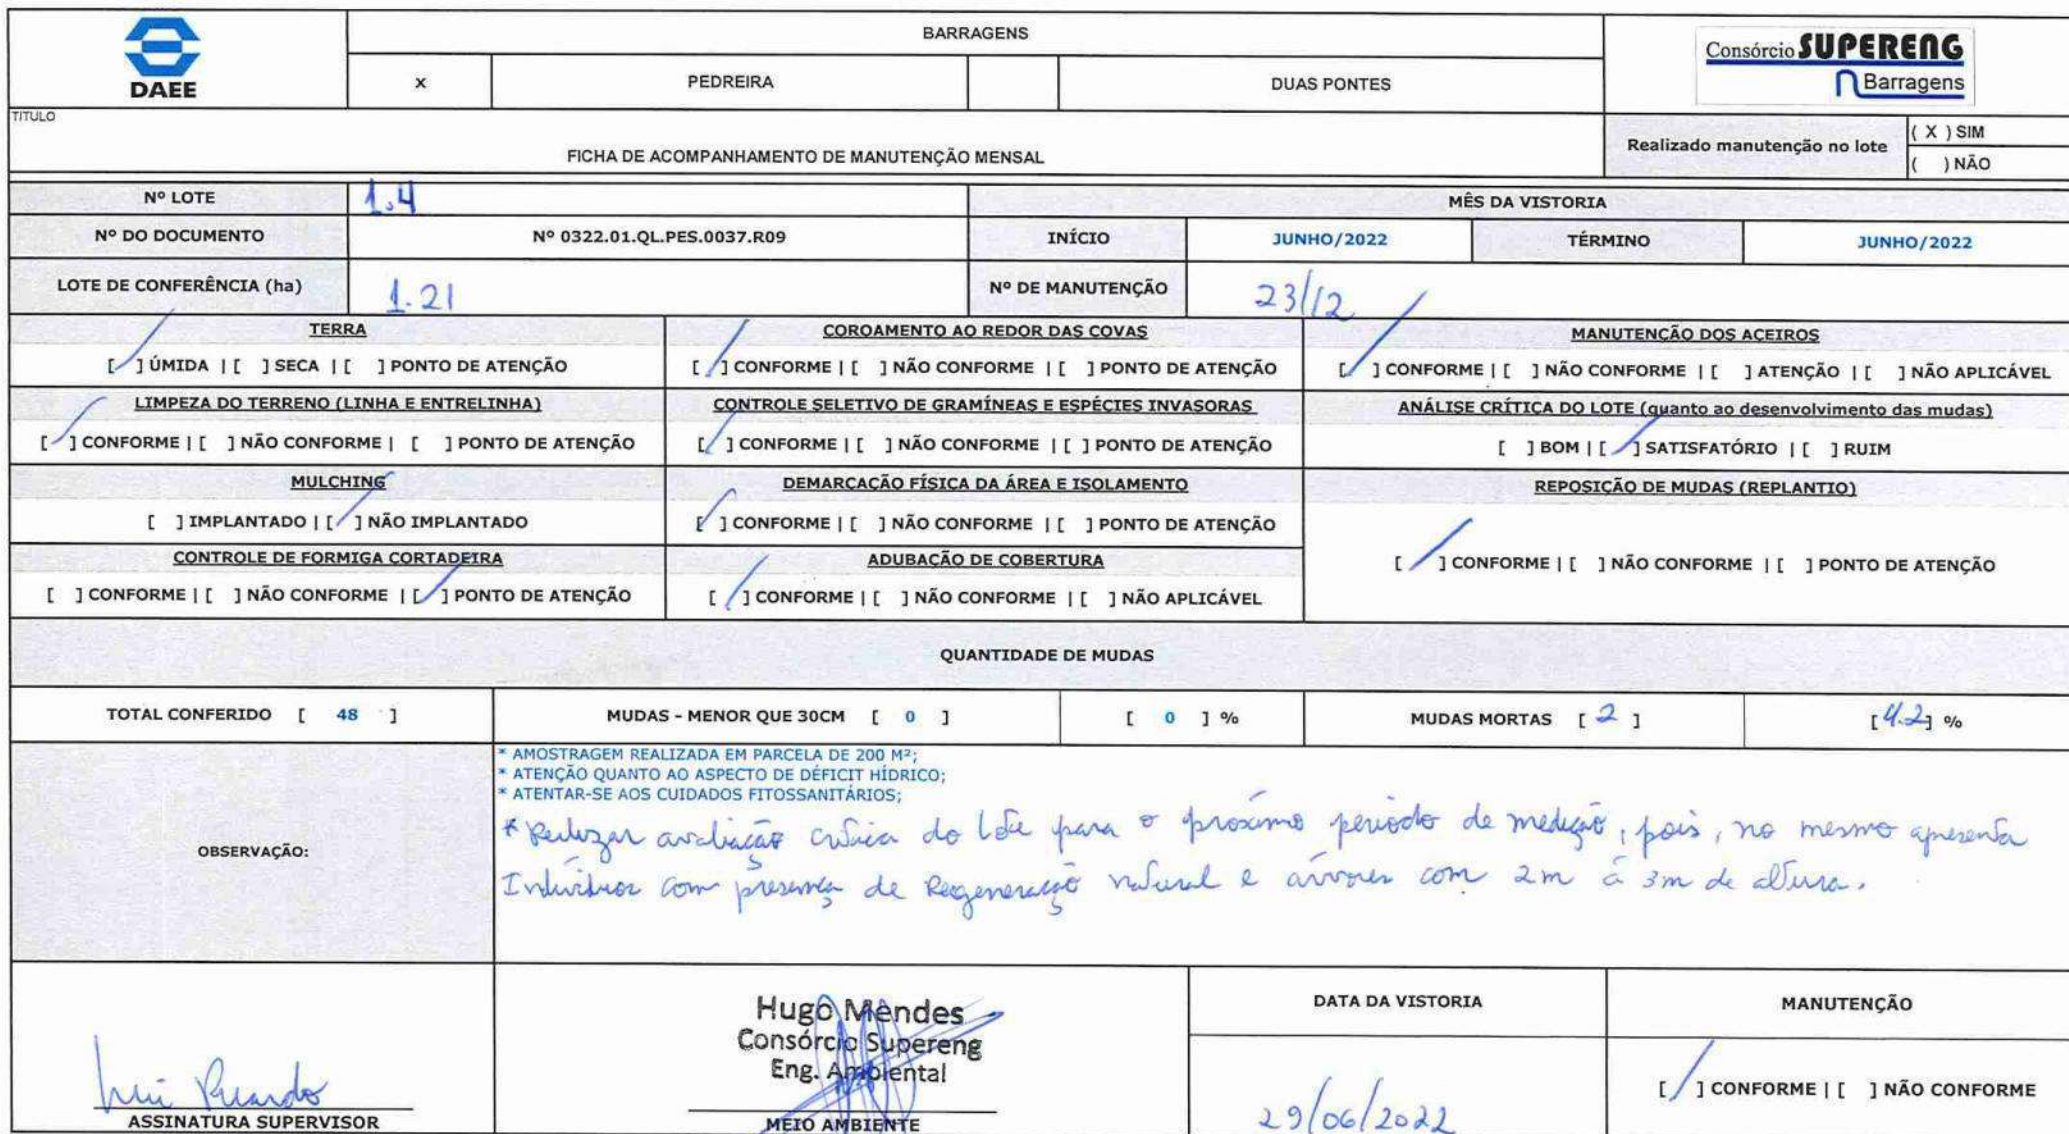 DAEE
BARRAGENS
x PEDREIRA DUAS PONTES
Consórcio SUPERENG
Barragens
TITULO
FICHA DE ACOMPANHAMENTO DE MANUTENÇÃO MENSAL
Realizado manutenção no lote
( X ) SIM
( ) NÃO
Nº LOTE 1.4
MÊS DA VISTORIA
Nº DO DOCUMENTO Nº 0322.01.QL.PES.0037.R09 INÍCIO JUNHO/2022 TÉRMINO JUNHO/2022
LOTE DE CONFERÊNCIA (ha) 1.21 Nº DE MANUTENÇÃO 23/12
TERRA
[/] ÚMIDA | [ ] SECA | [ ] PONTO DE ATENÇÃO
COROAMENTO AO REDOR DAS COVAS
[/] CONFORME | [ ] NÃO CONFORME | [ ] PONTO DE ATENÇÃO
MANUTENÇÃO DOS ACEIROS
[/] CONFORME | [ ] NÃO CONFORME | [ ] ATENÇÃO | [ ] NÃO APLICÁVEL
LIMPEZA DO TERRENO (LINHA E ENTRELINHA)
[/] CONFORME | [ ] NÃO CONFORME | [ ] PONTO DE ATENÇÃO
CONTROLE SELETIVO DE GRAMÍNEAS E ESPÉCIES INVASORAS
[/] CONFORME | [ ] NÃO CONFORME | [ ] PONTO DE ATENÇÃO
ANÁLISE CRÍTICA DO LOTE (quanto ao desenvolvimento das mudas)
[ ] BOM | [/] SATISFATÓRIO | [ ] RUIM
MULCHING
[ ] IMPLANTADO | [/] NÃO IMPLANTADO
DEMARCAÇÃO FÍSICA DA ÁREA E ISOLAMENTO
[/] CONFORME | [ ] NÃO CONFORME | [ ] PONTO DE ATENÇÃO
REPOSIÇÃO DE MUDAS (REPLANTIO)
[/] CONFORME | [ ] NÃO CONFORME | [ ] PONTO DE ATENÇÃO
CONTROLE DE FORMIGA CORTADEIRA
[ ] CONFORME | [ ] NÃO CONFORME | [/] PONTO DE ATENÇÃO
ADUBAÇÃO DE COBERTURA
[/] CONFORME | [ ] NÃO CONFORME | [ ] NÃO APLICÁVEL
QUANTIDADE DE MUDAS
TOTAL CONFERIDO [ 48 ] MUDAS - MENOR QUE 30CM [ 0 ] [ 0 ] % MUDAS MORTAS [ 2 ] [4.2] %
OBSERVAÇÃO:
* AMOSTRAGEM REALIZADA EM PARCELA DE 200 M²;
* ATENÇÃO QUANTO AO ASPECTO DE DÉFICIT HÍDRICO;
* ATENTAR-SE AOS CUIDADOS FITOSSANITÁRIOS;
* Realizar avaliação crítica do lote para o próximo período de medição, pois, no mesmo apresenta
Indivíduos com presença de Regeneração natural e árvores com 2m à 3m de altura.
Hugo Mendes
Consórcio Supereng
Eng. Ambiental
MEIO AMBIENTE
Ricardo
ASSINATURA SUPERVISOR
DATA DA VISTORIA
29/06/2022
MANUTENÇÃO
[/] CONFORME | [ ] NÃO CONFORME